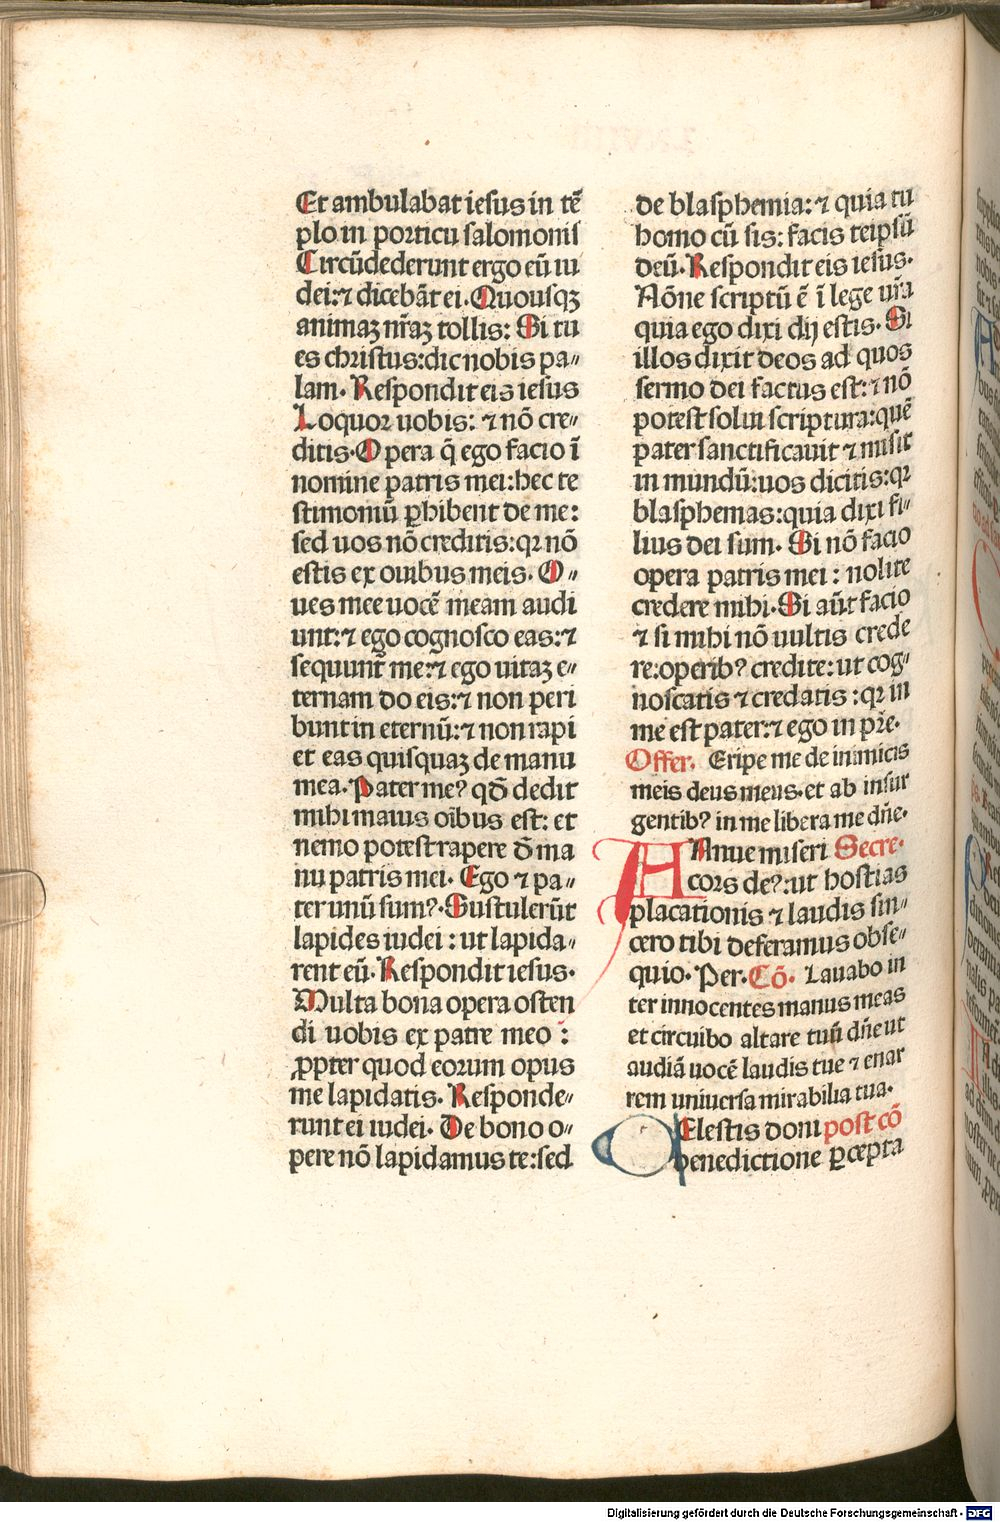 Et ambulabat iesus in tē
plo in porticu salomonis
Circūdederunt ergo eū iu
dei:⁊ dicebāt ei. Quousqꝫ
animaꝫ nr̄aꝫ tollis: Si tu
es christus:dic nobis pa⸗
lam. Respondit eis iesus
Loquor uobis: ⁊ nō cre⸗
ditis. Opera q̄ ego facio ī
nomine patris mei:hec te
stimoniū ꝑhibent de me:
sed uos nō creditis:qꝛ nō
estis ex ouibus meis. O⸗
ues mee uocē meam audi
unt:⁊ ego cognosco eas:⁊
sequunt̄ me:⁊ ego uitaꝫ e⸗
ternam do eis:⁊ non peri
bunt in eternū:⁊ non rapi
et eas quisquaꝫ de manu
mea. Pater meꝰ qd̄ dedit
mihi maius oībus est: et
nemo potest rapere d̄ ma
nu patris mei. Ego ⁊ pa⸗
ter unū sumꝰ. Sustulerūt
lapides iudei : ut lapida⸗
rent eū. Respondit iesus.
Multa bona opera osten
di uobis ex patre meo :
ꝓpter quod eorum opus
me lapidatis. Responde⸗
runt ei iudei. De bono o⸗
pere nō lapidamus te:sed
de blasphemia: ⁊ quia tu
homo cū sis: facis teipsū
deū. Respondit eis iesus.
Nōne scriptū ē ī lege ur̄a
quia ego dixi dij estis. Si
illos dixit deos ad quos
sermo dei factus est: ⁊ nō
potest solui scriptura:quē
pater sanctificauit ⁊ misit
in mundū:uos dicitis:qꝛ
blasphemas:quia dixi fi⸗
lius dei sum. Si nō facio
opera patris mei : nolite
credere mihi. Si aūt facio
⁊ si mihi nō uultis crede
re:operibꝰ credite: ut cog⸗
noscatis ⁊ credatis : qꝛ in
me est pater:⁊ ego in pr̄e.
Offer. Eripe me de inimicis
meis deus meus. et ab insur
gentibꝰ in me libera me dn̄e.
Annue miseri Secre.
cors deꝰ:ut hostias
placationis ⁊ laudis sin⸗
cero tibi deferamus obse⸗
quio. Per. Cō. Lauabo in
ter innocentes manus meas
et circuibo altare tuū dn̄e ut
audiā uocē laudis tue ⁊ enar
rem uniuersa mirabilia tua.
Celestis doni post cō
benedictione ꝑcepta
Digitalisierung gefördert durch die Deutsche Forschungsgemeinschaft - DFG